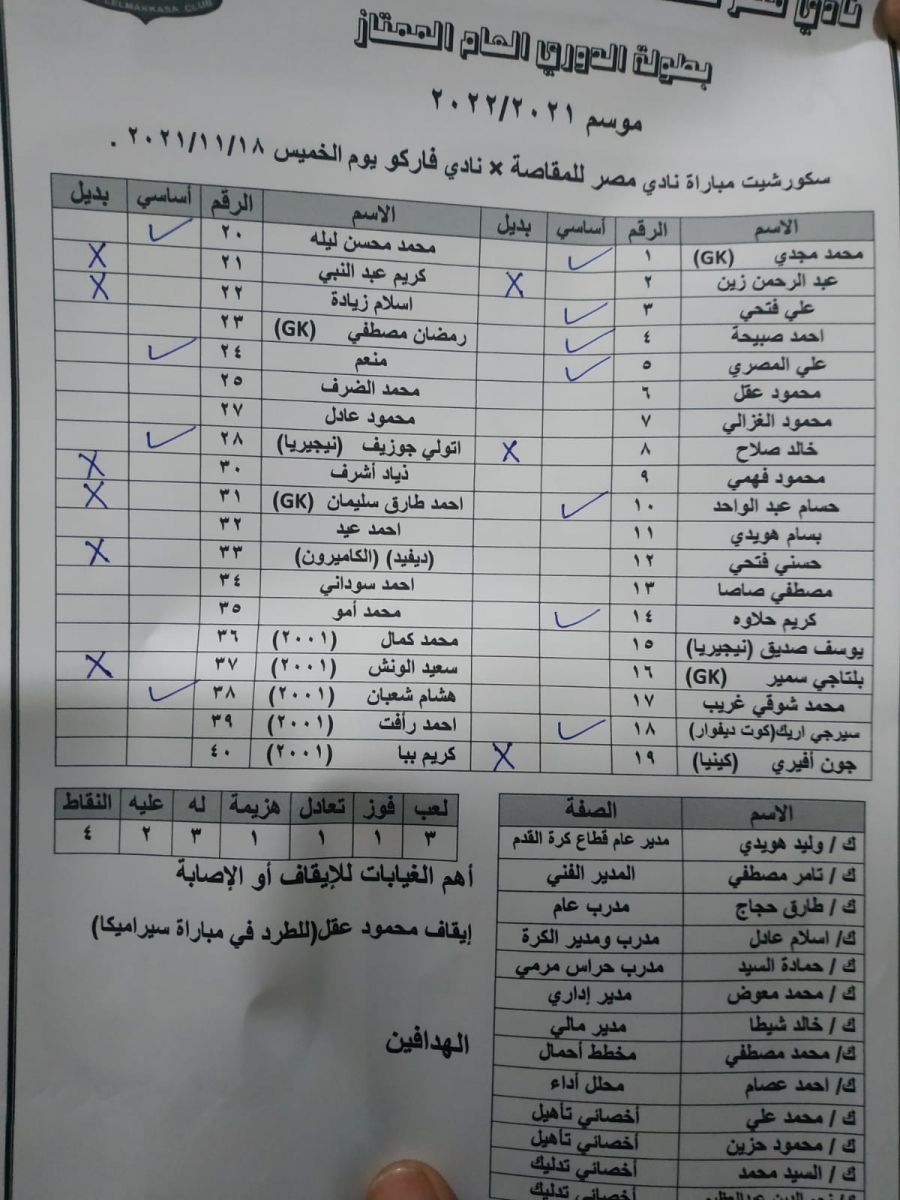 ELMAKKASA CLUB
بطولة الدوري العام الممتاز
موسم ٢٠٢٢/٢٠٢١
سكورشيت مباراة نادي مصر للمقاصة × نادي فاركو يوم الخميس ٢٠٢١/١١/١٨ .
الاسم الرقم أساسي بديل
محمد مجدي (GK) ١ ✓
عبد الرحمن زين ٢ X
علي فتحي ٣ ✓
احمد صبيحة ٤ ✓
علي المصري ٥ ✓
محمود عقل ٦
محمود الغزالي ٧
خالد صلاح ٨ X
محمود فهمي ٩
حسام عبد الواحد ١٠ ✓
بسام هويدي ١١
حسني فتحي ١٢
مصطفي صاصا ١٣
كريم حلاوه ١٤ ✓
يوسف صديق (نيجيريا) ١٥
بلتاجي سمير (GK) ١٦
محمد شوقي غريب ١٧
سيرجي اريك(كوت ديفوار) ١٨ ✓
جون أفيري (كينيا) ١٩ X
الاسم الرقم أساسي بديل
محمد محسن ليله ٢٠ ✓
كريم عبد النبي ٢١ X
اسلام زيادة ٢٢ X
رمضان مصطفي (GK) ٢٣
منعم ٢٤ ✓
محمد الضرف ٢٥
محمود عادل ٢٧
اتولي جوزيف (نيجيريا) ٢٨ ✓
ذياد أشرف ٣٠ X
احمد طارق سليمان (GK) ٣١ X
احمد عيد ٣٢
(ديفيد) (الكاميرون) ٣٣ X
احمد سوداني ٣٤
محمد أمو ٣٥
محمد كمال (٢٠٠١) ٣٦
سعيد الونش (٢٠٠١) ٣٧ X
هشام شعبان (٢٠٠١) ٣٨ ✓
احمد رأفت (٢٠٠١) ٣٩
كريم بيا (٢٠٠١) ٤٠
الاسم الصفة
ك / وليد هويدي مدير عام قطاع كرة القدم
ك / تامر مصطفي المدير الفني
ك / طارق حجاج مدرب عام
ك/ اسلام عادل مدرب ومدير الكرة
ك / حمادة السيد مدرب حراس مرمي
ك / محمد معوض مدير إداري
ك / خالد شيطا مدير مالي
ك/ محمد مصطفي مخطط أحمال
ك/ احمد عصام محلل أداء
ك / محمد علي أخصائي تأهيل
ك / محمود حزين أخصائي تأهيل
ك / السيد محمد أخصائي تدليك
أخصائي تدليك
لعب فوز تعادل هزيمة له عليه النقاط
٣ ١ ١ ١ ٣ ٢ ٤
أهم الغيابات للإيقاف أو الإصابة
إيقاف محمود عقل(للطرد في مباراة سيراميكا)
الهدافين